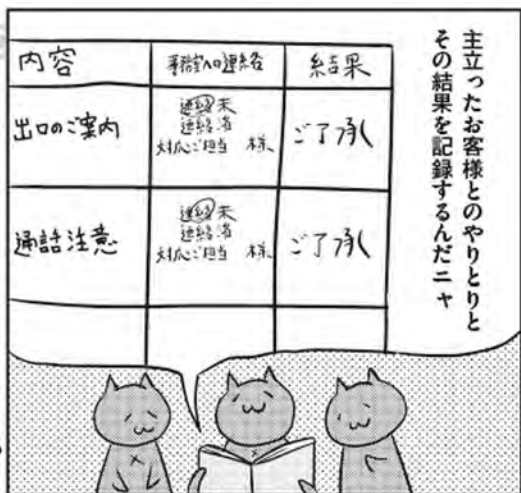 主立ったお客様とのやりとりと
その結果を記録するんだニャ
内容 事務室への連絡 結果
出口のご案内
連絡未
連絡済
対応ご担当 様
ご了承
通話注意
連絡未
連絡済
対応ご担当 様
ご了承